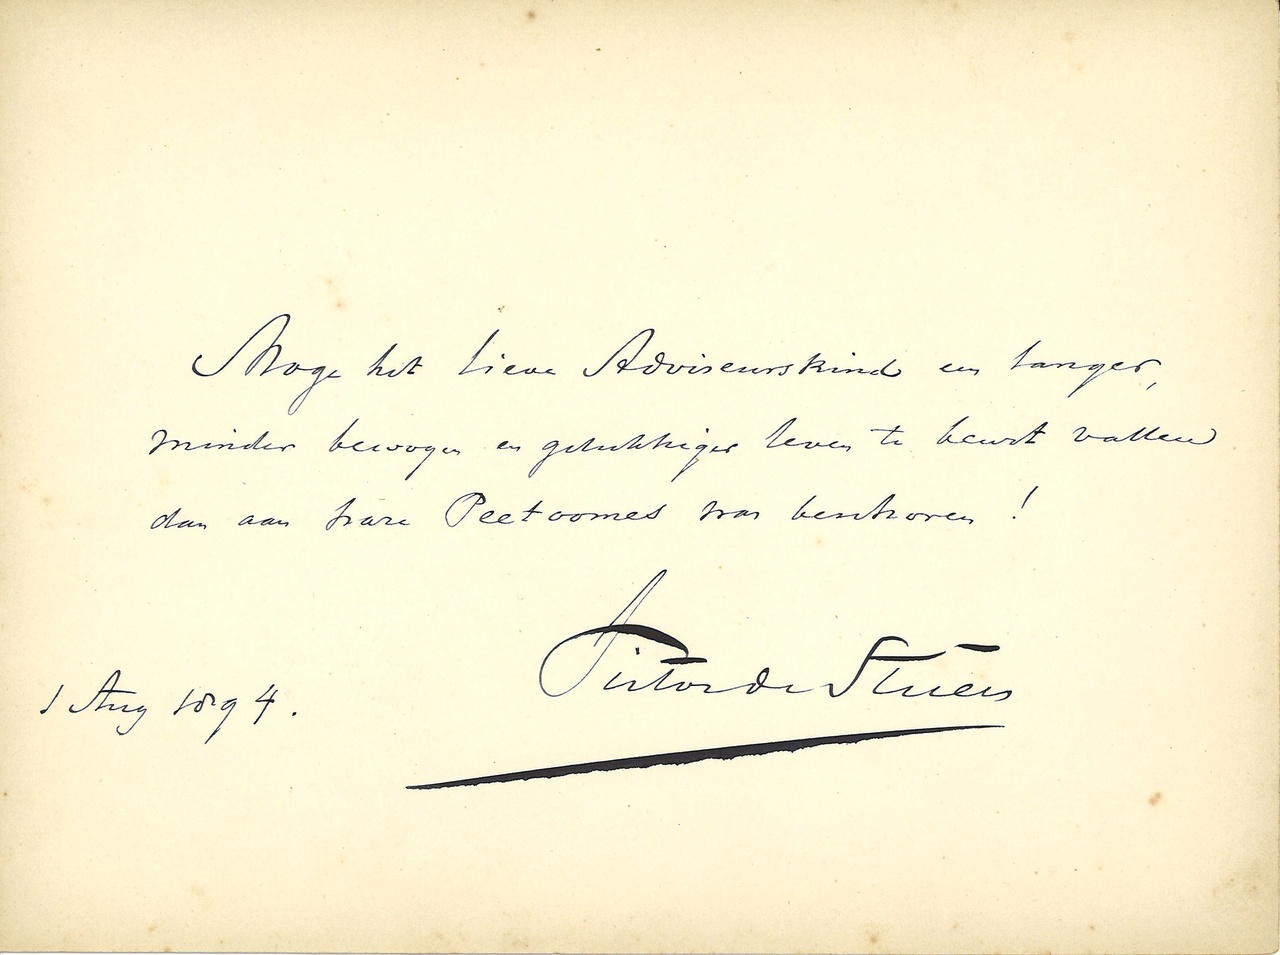 Moge het lieve Adviseurskind een langer,
minder bewogen en gelukkiger leven te beurt vallen
dan aan hare Peetoomes was beschoren!
Victor de Stuers
1 Aug 1894.